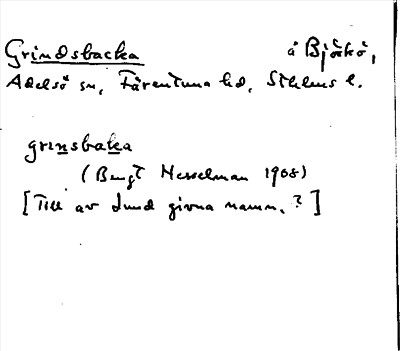 Grindsbacka å Björkö,
Adelsö sn, Färentuna hd, Sthlms l.
grinsbaka
(Bengt Hesselman 1908)
[Till av Lund givna namn. ?]